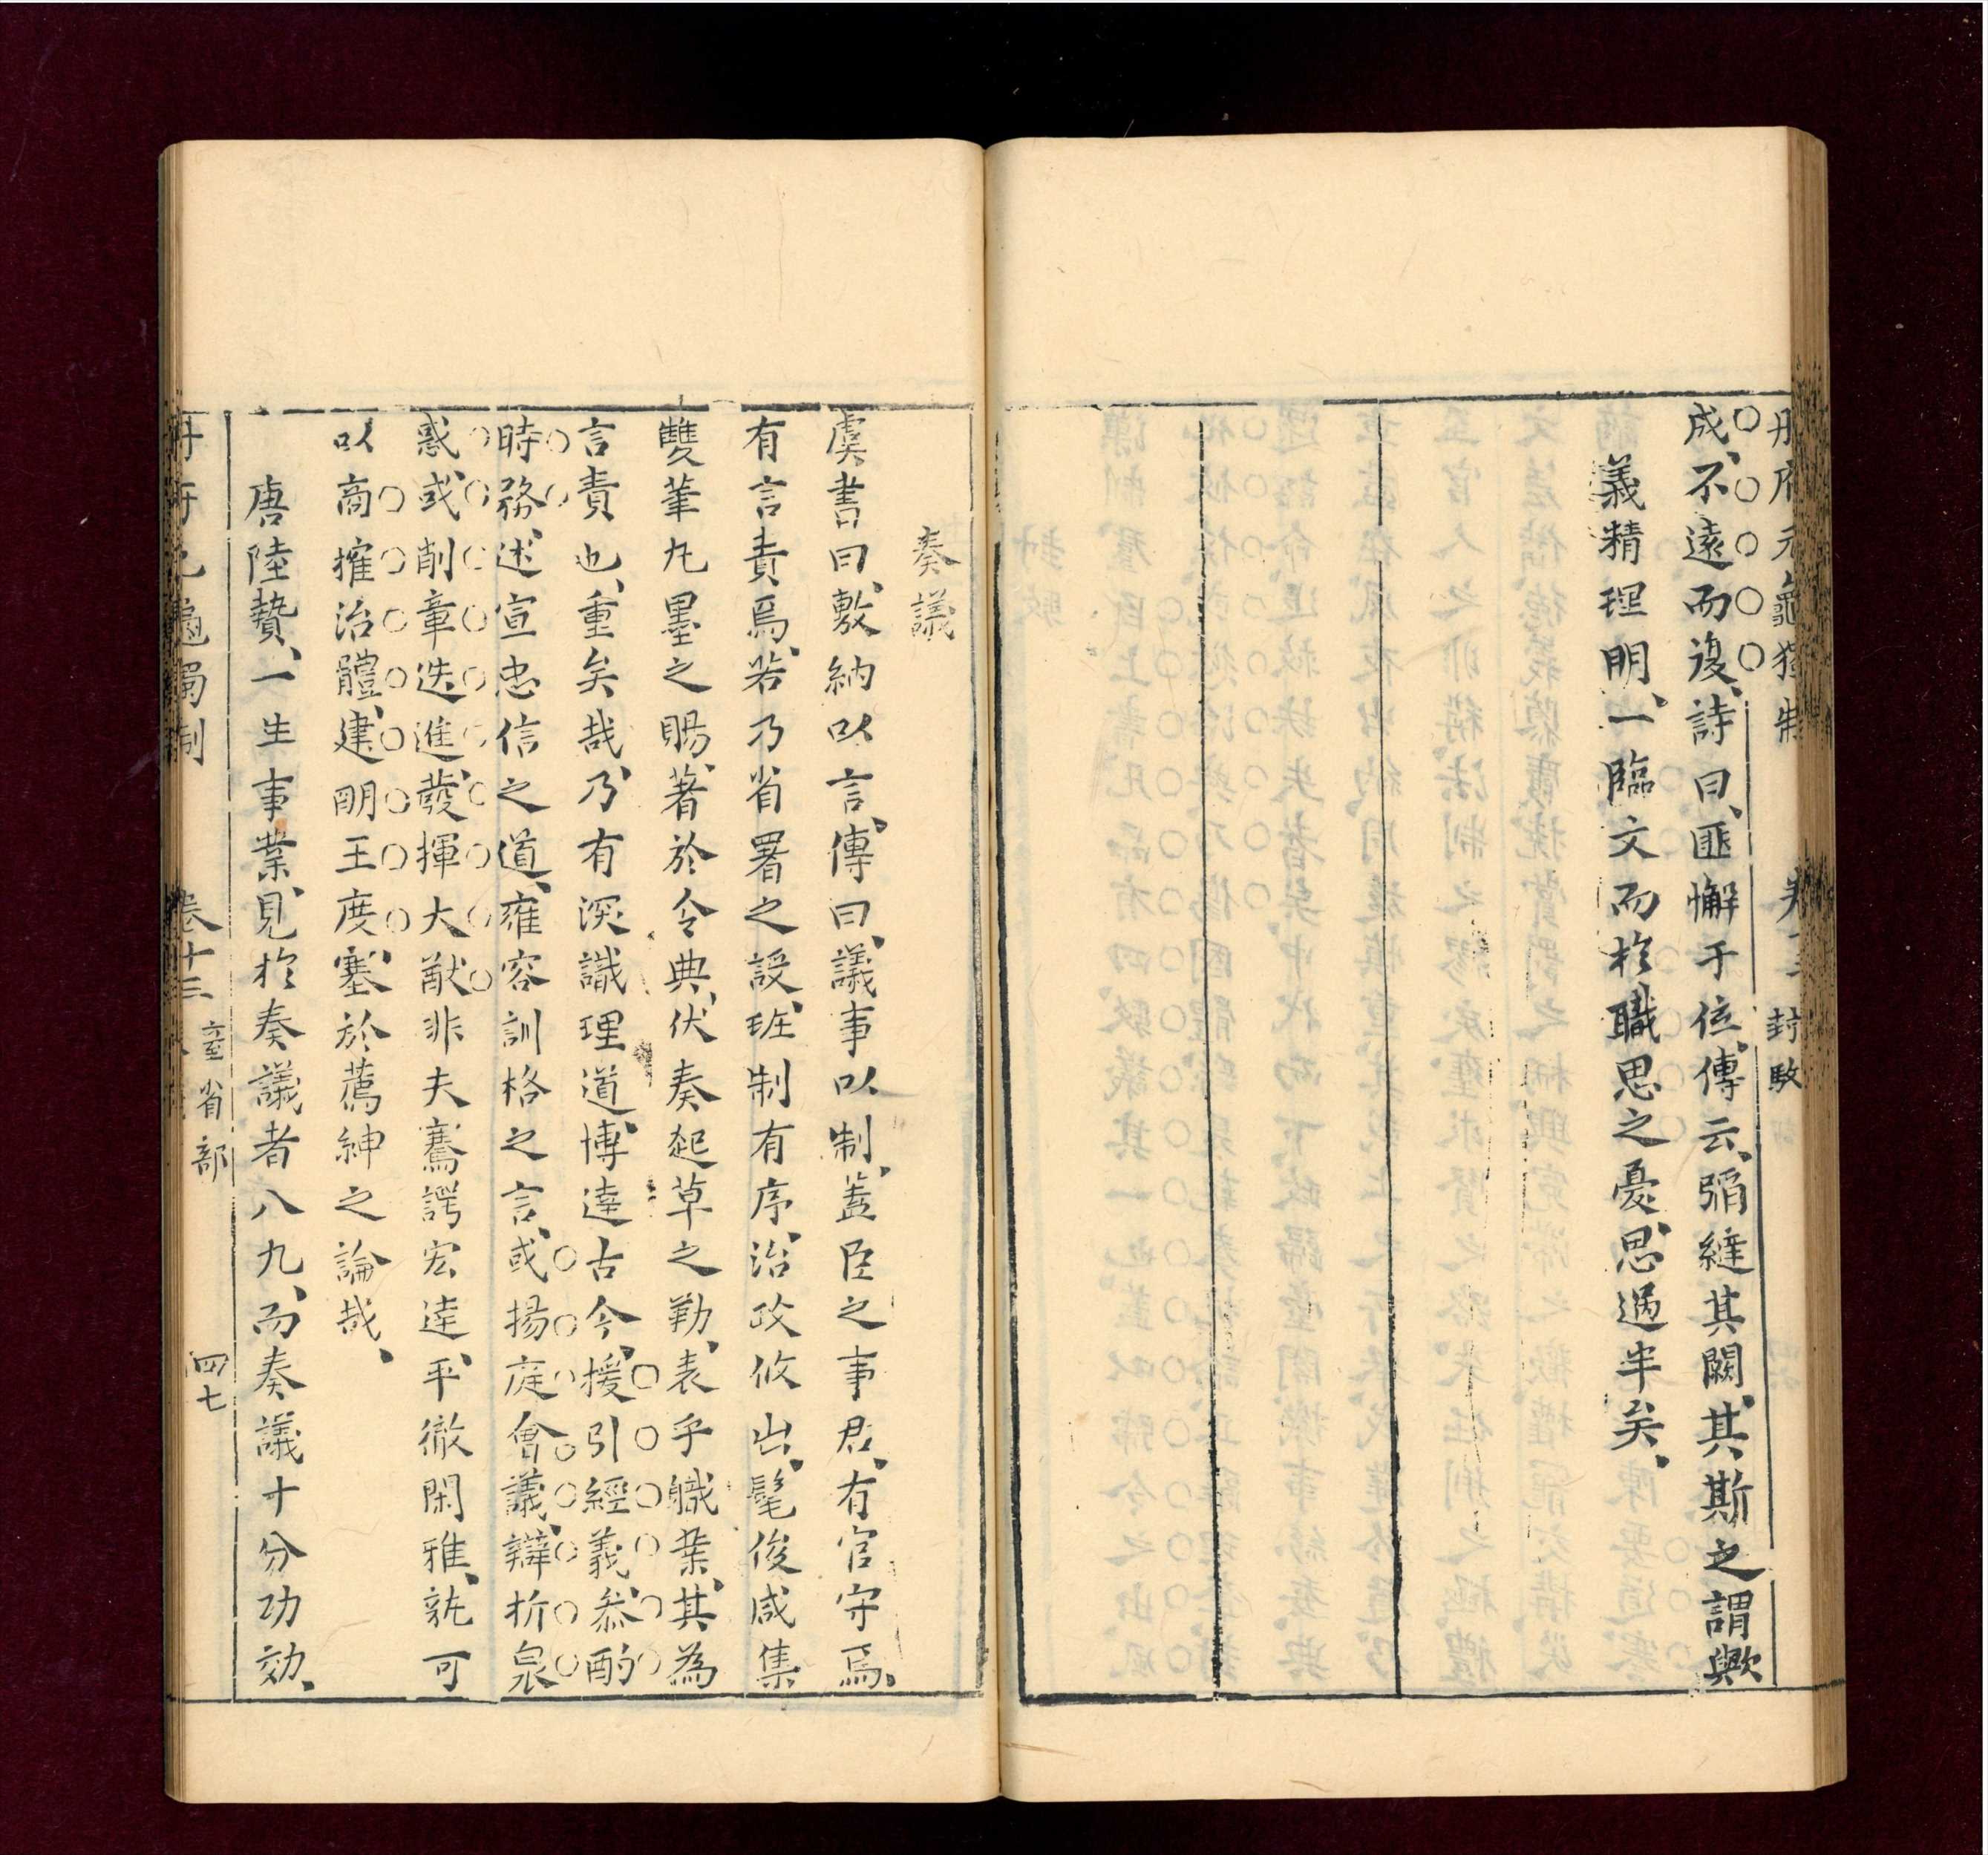 冊府元龜獨制 卷十三 封駮
成、不遠而復、詩曰、匪懈于位、傳云、彌縫其闕、其斯之謂歟
義精理明、一臨文而於職思之憂、思過半矣、
奏議
虞書曰、敷納以言、傳曰、議事以制、蓋臣之事君、有官守焉、
有言責焉、若乃省署之設、班制有序、治政攸出、髦俊咸集
雙筆九墨之賜、著於令典、伏奏起草之勤、表乎職業、其為
言責也、重矣哉、乃有深識理道、博達古今、援引經義、叅酌
時務、述宣忠信之道、雍容訓格之言、或揚庭會議、辯折衆
惑、或削章迭進、發揮大猷、非夫謇諤宏達、平徹閑雅、孰可
以商搉治體、建明王度、塞於薦紳之論哉、
唐陸贄、一生事業、見於奏議者八九、而奏議十分功効、
冊府元龜獨制 卷十三 臺省部 四七